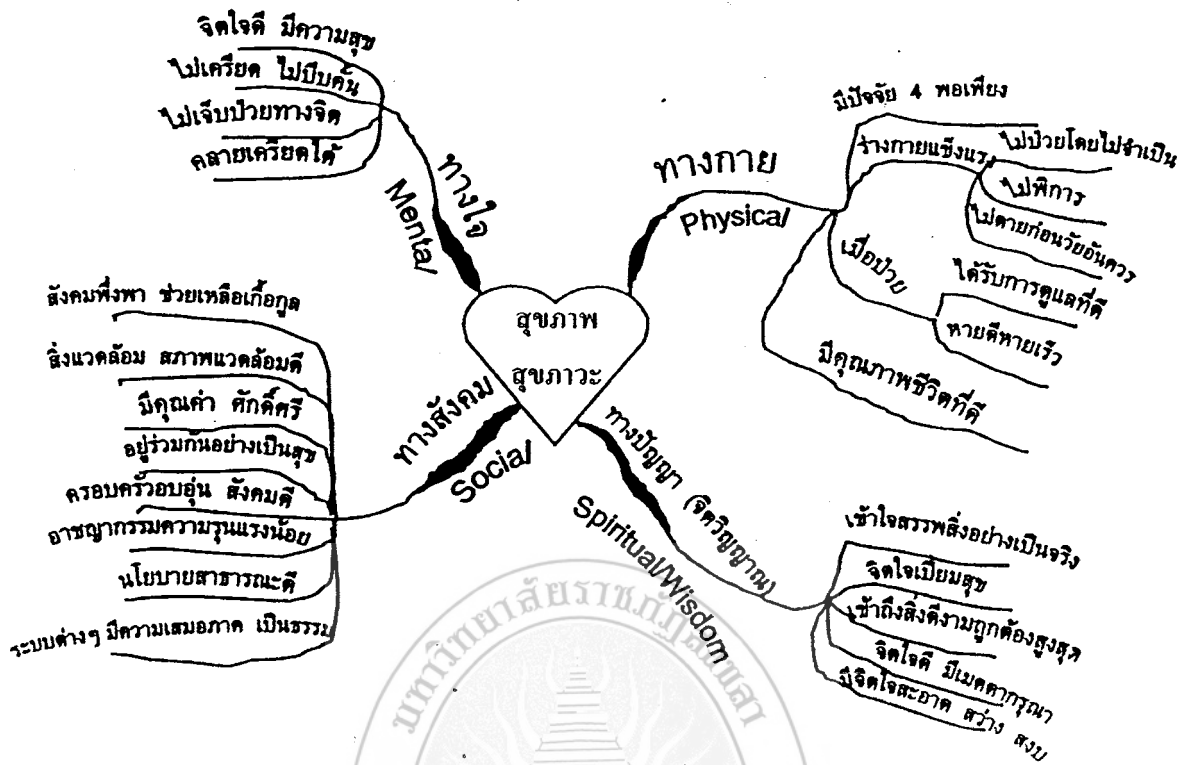 สุขภาพ
สุขภาวะ
ทางใจ
Mental
จิตใจดี มีความสุข
ไม่เครียด ไม่บีบคั้น
ไม่เจ็บป่วยทางจิต
คลายเครียดได้
ทางกาย
Physical
มีปัจจัย 4 พอเพียง
ร่างกายแข็งแรง
ไม่ป่วยโดยไม่จำเป็น
ไม่พิการ
ไม่ตายก่อนวัยอันควร
เมื่อป่วย
ได้รับการดูแลที่ดี
หายดีหายเร็ว
มีคุณภาพชีวิตที่ดี
ทางสังคม
Social
สังคมพึ่งพา ช่วยเหลือเกื้อกูล
สิ่งแวดล้อม สภาพแวดล้อมดี
มีคุณค่า ศักดิ์ศรี
อยู่ร่วมกันอย่างเป็นสุข
ครอบครัวอบอุ่น สังคมดี
อาชญากรรมความรุนแรงน้อย
นโยบายสาธารณะดี
ระบบต่างๆ มีความเสมอภาค เป็นธรรม
ทางปัญญา (จิตวิญญาณ)
Spiritual/Wisdom
เข้าใจสรรพสิ่งอย่างเป็นจริง
จิตใจเปี่ยมสุข
เข้าถึงสิ่งดีงามถูกต้องสูงสุด
จิตใจดี มีเมตตากรุณา
มีจิตใจสะอาด สว่าง สงบ